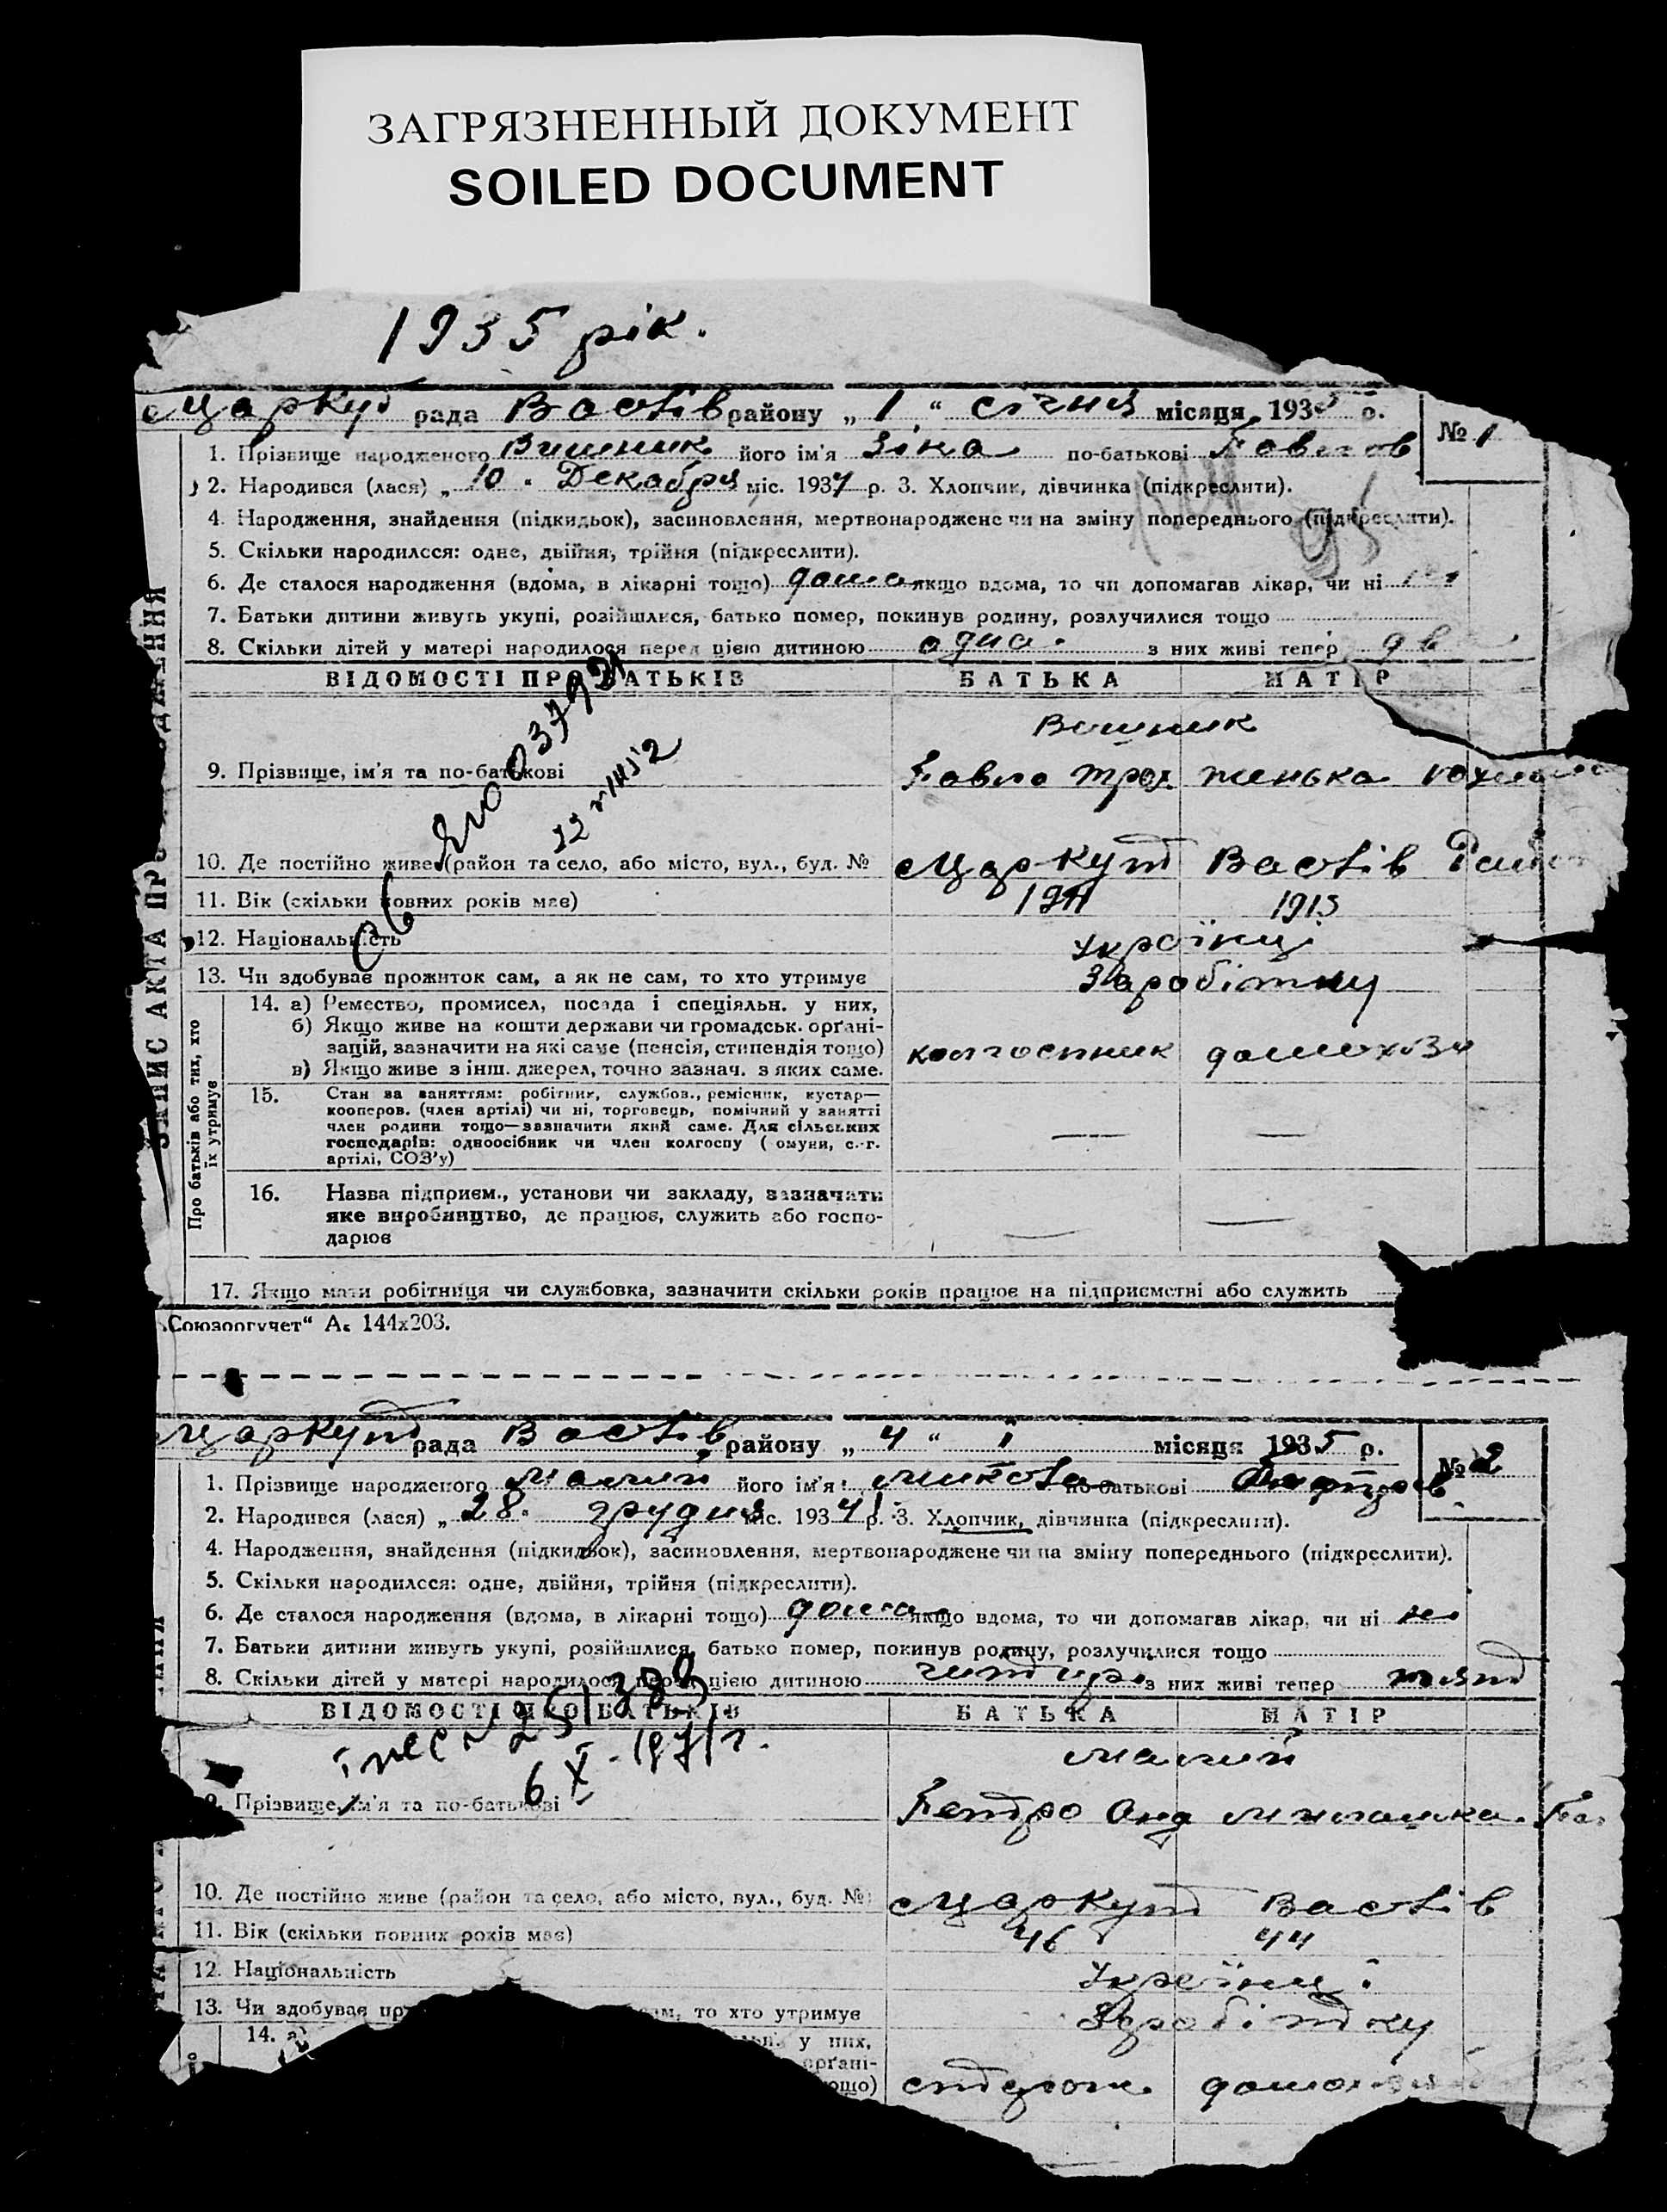 ЗАГРЯЗНЕННЫЙ ДОКУМЕНТ
SOILED DOCUMENT
1935 рік.
рада району „ 1 “ січня місяця 1935 р.
№ 1
1. Прізвище народженого Вишник його ім'я Зіна по-батькові Павлов
2. Народився (лася) „ 10 “ Декабря міс. 1934 р. 3. Хлопчик, дівчинка (підкреслити).
4. Народження, знайдення (підкидьок), засиновлення, мертвонароджене чи на зміну попереднього (підкреслити).
5. Скільки народилсся: одне, двійня, трійня (підкреслити).
6. Де сталося народження (вдома, в лікарні тощо) дома якщо вдома, то чи допомагав лікар, чи ні
7. Батьки дитини живуть укупі, розійшлися, батько помер, покинув родину, розлучилися тощо
8. Скільки дітей у матері народилося перед цією дитиною одна з них живі тепер
ВІДОМОСТІ ПРО БАТЬКІВ БАТЬКА МАТІР
Вишник
9. Прізвище, ім'я та по-батькові Павло
10. Де постійно живе (район та село, або місто, вул., буд. №
11. Вік (скільки повних років має) 1915
12. Національність Українці
13. Чи здобуває прожиток сам, а як не сам, то хто утримує Заробітку
ЗАПИС АКТА ПРО
Про батьків або тих, хто їх утримує
14. а) Ремество, промисел, посада і спеціяльн. у них,
б) Якщо живе на кошти держави чи громадськ. орґані-
зацій, зазначити на які саме (пенсія, стипендія тощо) колгоспник домохоз
в) Якщо живе з інш. джерел, точно зазнач. з яких саме.
15. Стан за заняттям: робітник, службов., ремісник, кустар—
кооперов. (член артілі) чи ні, торговець, помічний у занятті
член родини тощо—зазначити який саме. Для сільських
господарів: одноосібник чи член колгоспу ( омуни, с.-г.
артілі, СОЗ'у)
16. Назва підприєм., установи чи закладу, зазначать
яке виробництво, де працює, служить або госпо-
дарює
17. Якщо мати робітниця чи службовка, зазначити скільки років працює на підприємстві або служить
„Союзоргучет“ А. 144х203.
рада району „ 4 “ 1 місяця 1935 р.
№ 2
1. Прізвище народженого Малий його ім'я Микола по-батькові
2. Народився (лася) „ 28 грудня міс. 1934 р. 3. Хлопчик, дівчинка (підкреслити).
4. Народження, знайдення (підкидьок), засиновлення, мертвонароджене чи на зміну попереднього (підкреслити).
5. Скільки народилсся: одне, двійня, трійня (підкреслити).
6. Де сталося народження (вдома, в лікарні тощо) дома якщо вдома, то чи допомагав лікар, чи ні ні
7. Батьки дитини живуть укупі, розійшлися, батько помер, покинув родину, розлучилися тощо
8. Скільки дітей у матері народилося перед цією дитиною з них живі тепер
ВІДОМОСТІ ПРО БАТЬКІВ БАТЬКА МАТІР
6 X - 1971 г.
Малий
9. Прізвище, ім'я та по-батькові Петро Анд
10. Де постійно живе (район та село, або місто, вул., буд. №
11. Вік (скільки повних років має) 46 44
12. Національність Українці
13. Чи здобуває то хто утримує Заробітку
14. а) у них,
орґані-
тощо) сторож